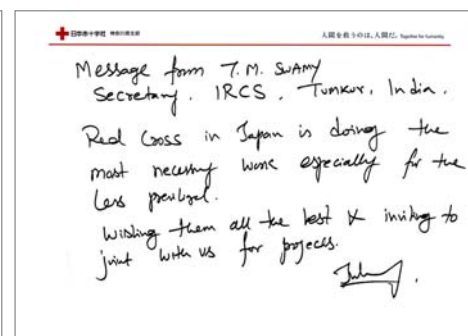 日本赤十字社 神奈川県支部
人間を救うのは、人間だ。 Together for humanity.
Message from T.M. SWAMY
Secretary. IRCS, Tumkur, India.
Red Cross in Japan is doing the
most necessary work especially for the
Less previlged.
Wishing them all the best & inviting to
joint with us for projects.